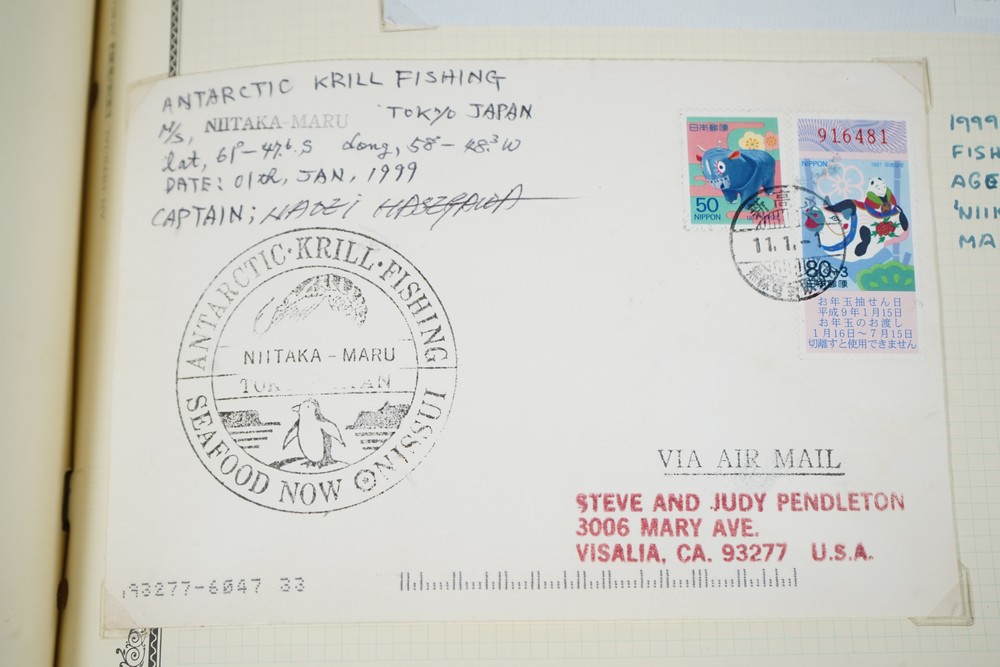 ANTARCTIC KRILL FISHING
M/S, NIITAKA-MARU TOKYO JAPAN
Lat, 61º-47.6 S Long, 58º-48.3 W
DATE: 01th, JAN, 1999
CAPTAIN: HASEGAWA
ANTARCTIC·KRILL·FISHING
NIITAKA-MARU
SEAFOOD NOW NISSUI
日本郵便
50
NIPPON
916481
NIPPON 1997
80+3
日本郵便
お年玉抽せん日
平成9年1月15日
お年玉のお渡し
1月16日~7月15日
切離すと使用できません
11.1.-1
VIA AIR MAIL
STEVE AND JUDY PENDLETON
3006 MARY AVE.
VISALIA, CA. 93277 U.S.A.
93277-6047 33
1999
FISH
AGE
'NIIK
MA